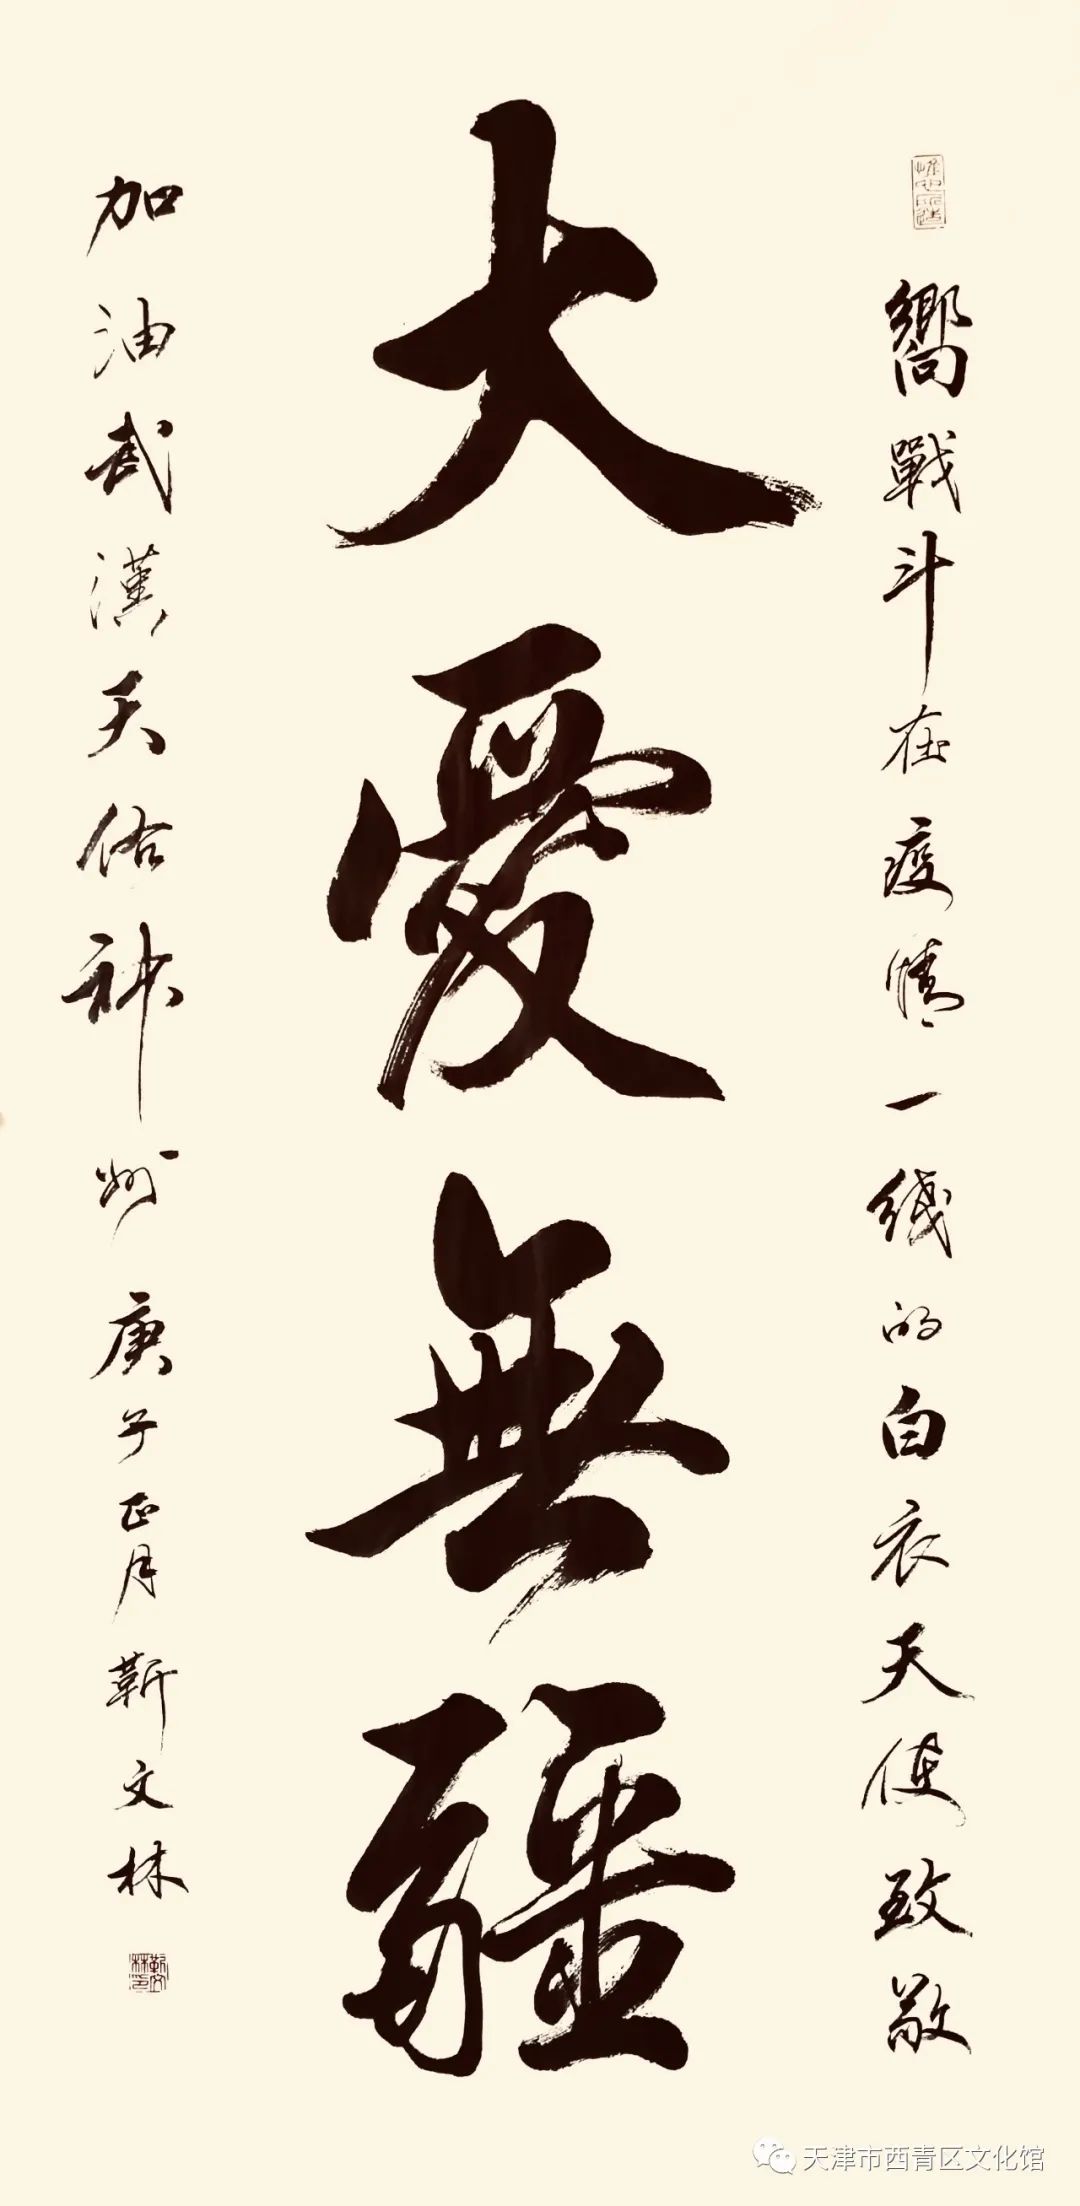 嚮戰斗在疫情一线的白衣天使致敬
大愛無疆
加油武漢天佑神州 庚子正月 靳文林
靳文林印
天津市西青区文化馆